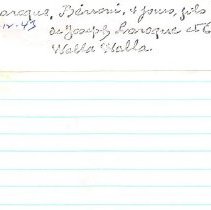 Laroque, Bénoni, 4 jours, fils
11-43 de Joseph Laroque et
Walla Walla.